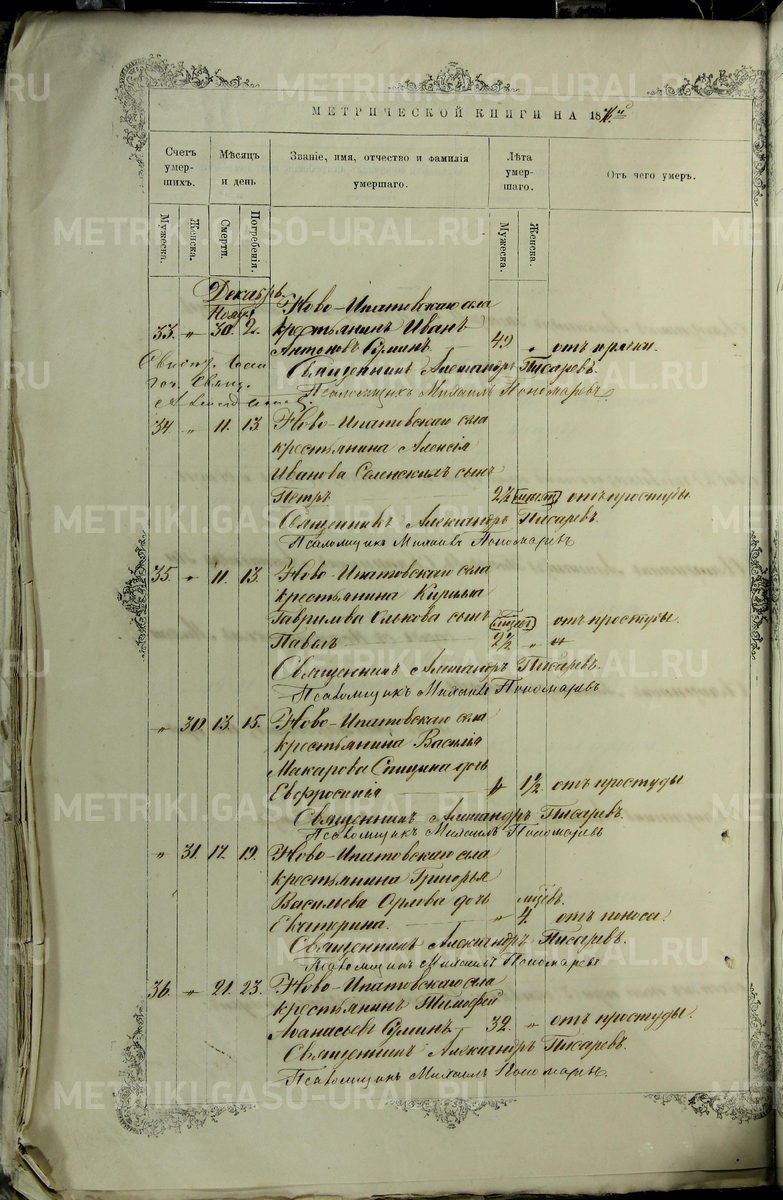 МЕТРИЧЕСКОЙ КНИГИ НА 18
Счетъ умер-шихъ. Мѣсяцъ и день Званіе, имя, отчество и фамилія умершаго. Лѣта умер-шаго. Отъ чего умеръ.
Мужеска. Женска. Смерти. Погребенія. Мужеска. Женска.
Декабрь
Ново-Ипатовскаго села
Нояб.
33. " 30. 2. крестьянинъ Иванъ
Антоновъ 42 " отъ
Священникъ Александръ Писаревъ.
Псаломщикъ Михаилъ Пономаревъ
34 " 11. 13. Ново-Ипатовскаго села
крестьянина Алексія
Иванова сынъ
Петръ 2½ отъ простуды
Священникъ Александръ Писаревъ.
Псаломщикъ Михаилъ Пономаревъ
35. " 11. 13. Ново-Ипатовскаго села
крестьянина Кирилла
Гаврилова сынъ
Павелъ 2½ " отъ простуды.
Священникъ Александръ Писаревъ.
Псаломщикъ Михаилъ Пономаревъ
" 30 13. 15. Ново-Ипатовскаго села
крестьянина Василія
Макарова Спицина дочь
Евфросинія 1½. отъ простуды
Священникъ Александръ Писаревъ.
Псаломщикъ Михаилъ Пономаревъ
" 31. 17. 19. Ново-Ипатовскаго села
крестьянина Григорья
Васильева Орлова дочь
Екатерина. " 4. отъ поноса.
Священникъ Александръ Писаревъ.
Псаломщикъ Михаилъ Пономаревъ
36. " 21. 23. Ново-Ипатовскаго села
крестьянинъ Тимофей
Аѳанасьевъ 32. " отъ простуды.
Священникъ Александръ Писаревъ.
Псаломщикъ Михаилъ Пономаревъ.
METRIKI.GASO-URAL.RU